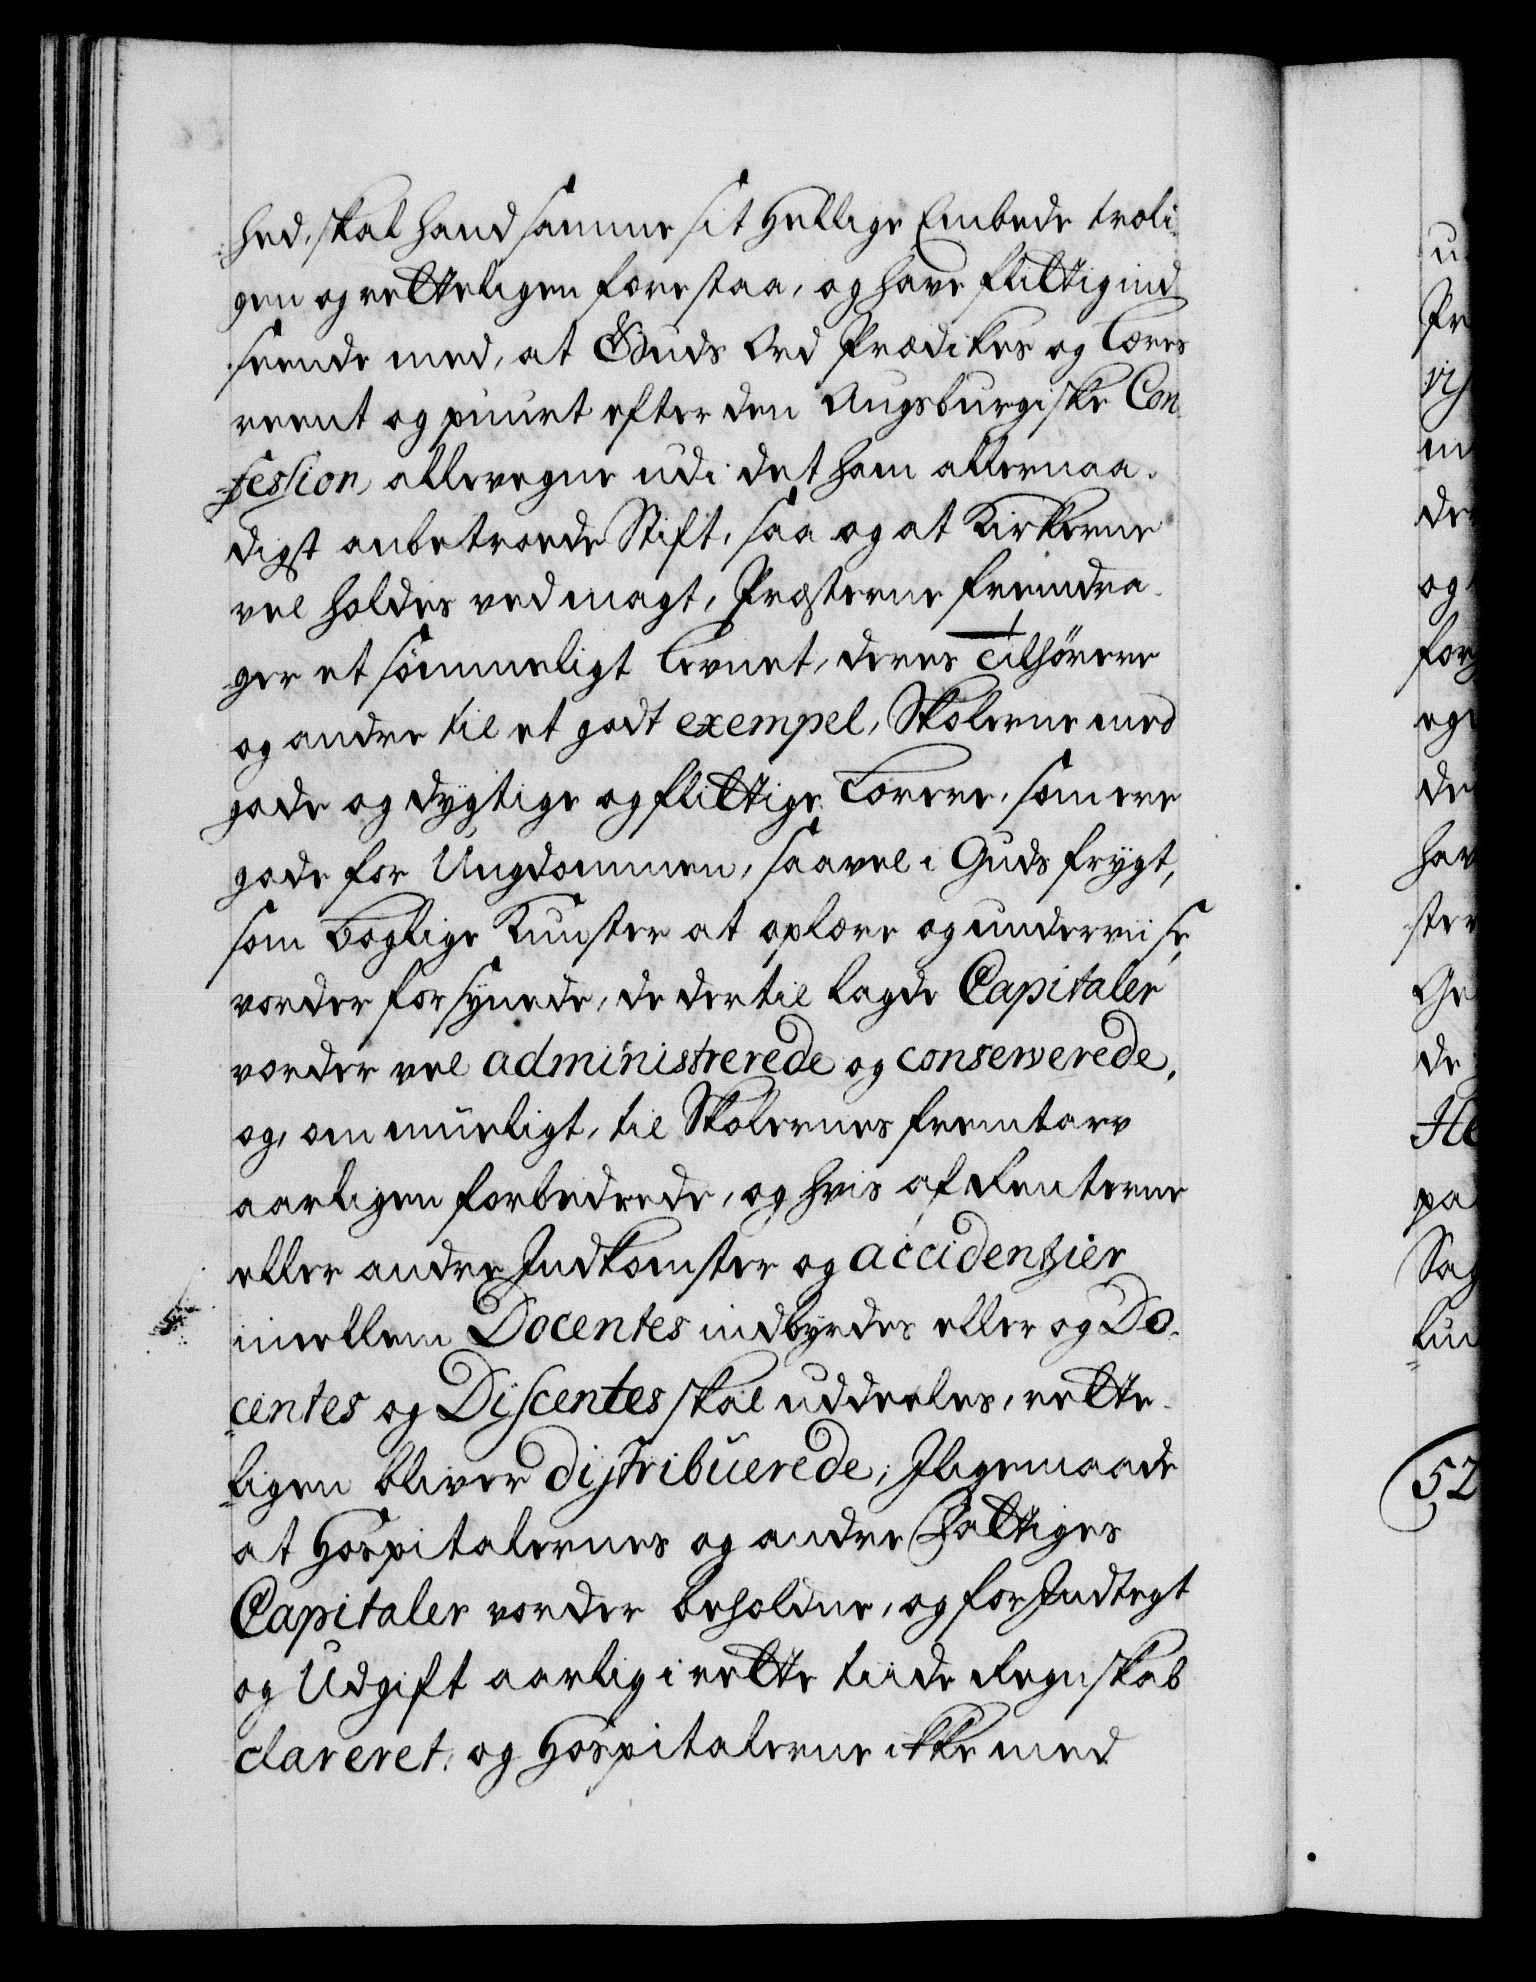 hed, skal hand samme sit Hellige Embede troli
gen og retteligen forestaa, og have flittig ind
seende med, at Guds Ord Prædikes og Læres
reent og puurt efter den Augsburgiske Con
fession, allevegne udi det ham allernaa
digst anbetroede Stift, saa og at Kirkerne
vel holdes ved magt, Præsterne fremdra
ger et sömmeligt Levnet, deres Tilhörere
og andre til et godt exempel, Skolerne med
gode og dygtige og flittige Lærere, som ere
gode for Ungdommen, saavel i Guds frygt,
som Boglige Kunster at oplære og underviise,
vorder forsynede, de dertil lagde Capitaler
vorder vel administrerede og conserverede,
og, om mueligt, til Skolernes fremtarv
aarligen forbedrede, og hvis af Renterne
eller andre Indkomster og accidentzier
imellem Docentes indbyrdes eller og Do
centes og Discentes skal uddeeles, rette
ligen bliver distribuerede, Iligemaade
at Hospitalernes og andre Fattiges
Capitaler vorder beholdne, og for Indtegt
og Udgift aarlig i rette tiide Regnskab
clareret, og Hospitalerne ikke med
52